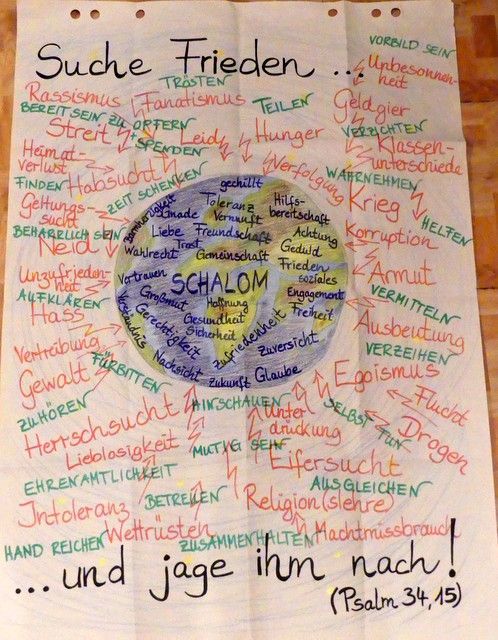 Suche Frieden ...
VORBILD SEIN
Unbesonnen-
heit
TRÖSTEN
Rassismus
Fanatismus
TEILEN
Geldgier
BEREIT SEIN ZU OPFERN
VERZICHTEN
Streit
Leid
Hunger
Klassen-
unterschiede
SPENDEN
Heimat-
verlust
Habsucht
Verfolgung
WAHRNEHMEN
FINDEN
ZEIT SCHENKEN
Krieg
Geltungs-
sucht
HELFEN
BEHARRLICH SEIN
Neid
Korruption
Unzufrieden-
heit
Armut
AUFKLÄREN
VERMITTELN
Hass
Ausbeutung
Vertreibung
VERZEIHEN
FÜRBITTEN
Gewalt
Egoismus
gechillt
Barmherzigkeit
Toleranz
Hilfs-
bereitschaft
Gnade
Vernunft
Liebe
Freundschaft
Achtung
Trost
Geduld
Wahlrecht
Gemeinschaft
Frieden
Vertrauen
SCHALOM
soziales
Engagement
Großmut
Hoffnung
Freiheit
Verständnis
Gerechtigkeit
Gesundheit
Sicherheit
Zufriedenheit
Zuversicht
Nachsicht
Zukunft
Glaube
ZUHÖREN
HINSCHAUEN
Flucht
Herrschsucht
Unter
drückung
SELBST TUN
Drogen
Lieblosigkeit
MUTIG SEIN
Eifersucht
EHRENAMTLICHKEIT
AUSGLEICHEN
Intoleranz
BETREUEN
Religion(slehre)
Wettrüsten
Machtmissbrauch
HAND REICHEN
ZUSAMMENHALTEN
... und jage ihm nach!
(Psalm 34,15)